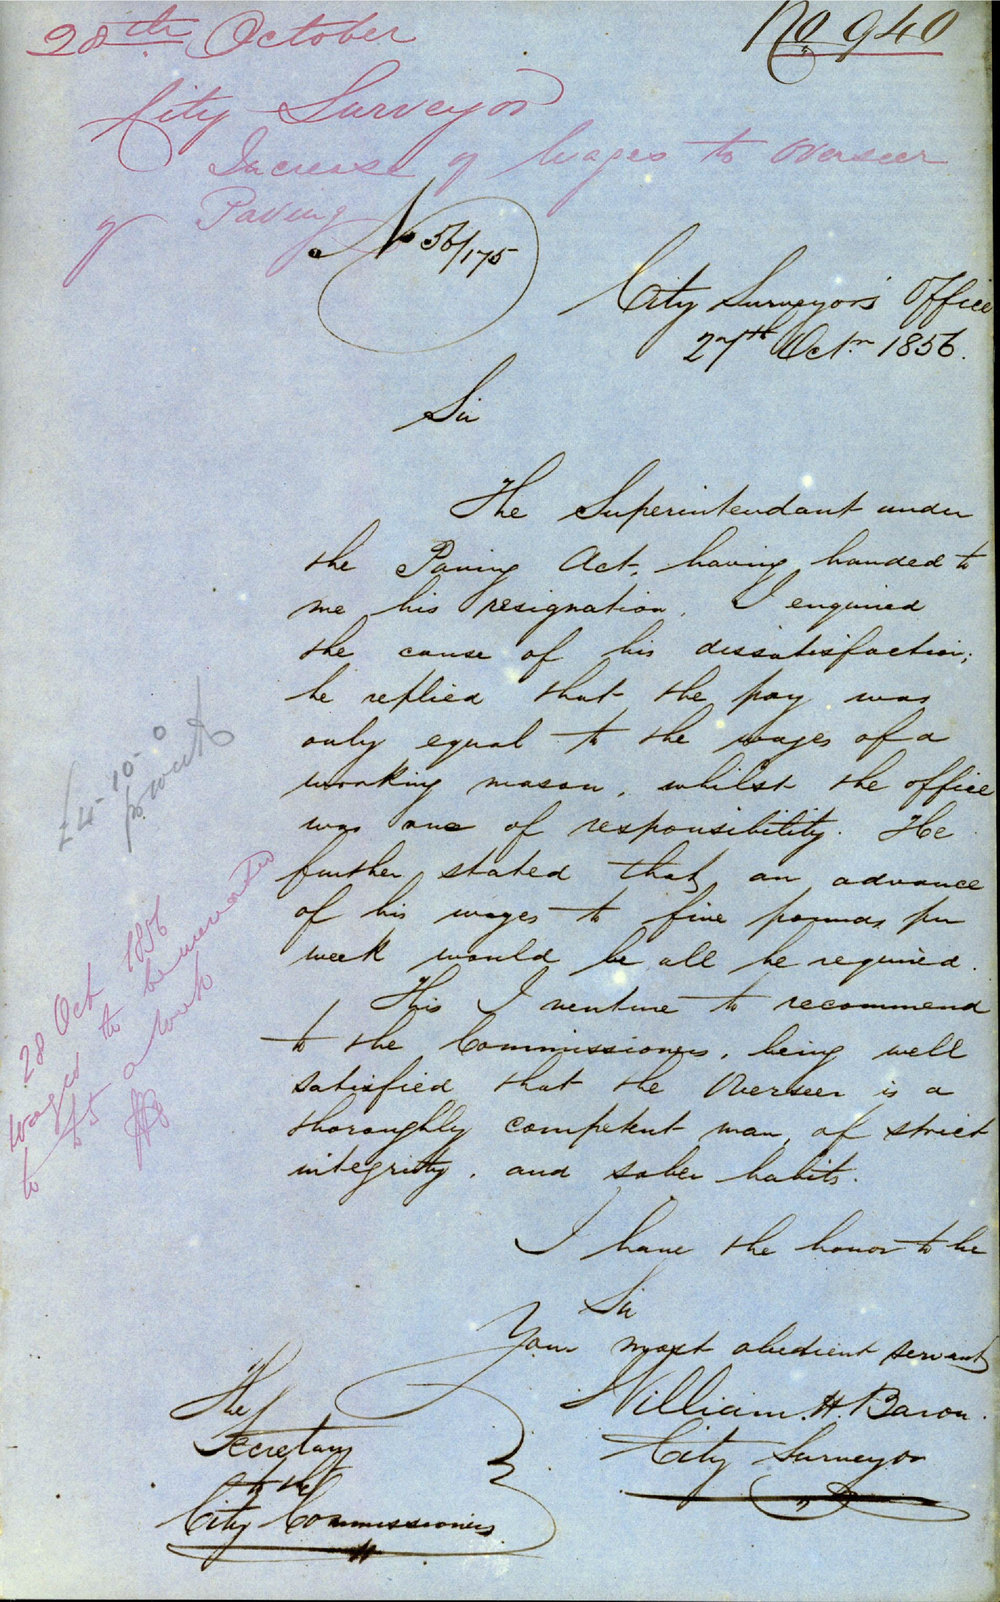 28th October
No 940
City Surveyor
Increase of Wages to Overseer
of Paving
No 56/175
City Surveyor's Office
27th Octr. 1856.
Sir
The Superintendant under
the Paving Act, having handed to
me his resignation, I enquired
the cause of his dissatisfaction;
he replied that the pay was
only equal to the wages of a
working mason, whilst the office
was one of responsibility. He
further stated that an advance
of his wages to five pounds per
week would be all he required.
This I venture to recommend
to the Commissioners, being well
satisfied that the Overseer is a
thoroughly competent man, of strict
integrity, and sober habits.
I have the honor to be
Sir
Your most obedient servant
William. H. Baron.
City Surveyor
The
Secretary
to the
City Commissioners
£4-10-0
pr week
28 Oct 1856
Wages to be
to £5 a week